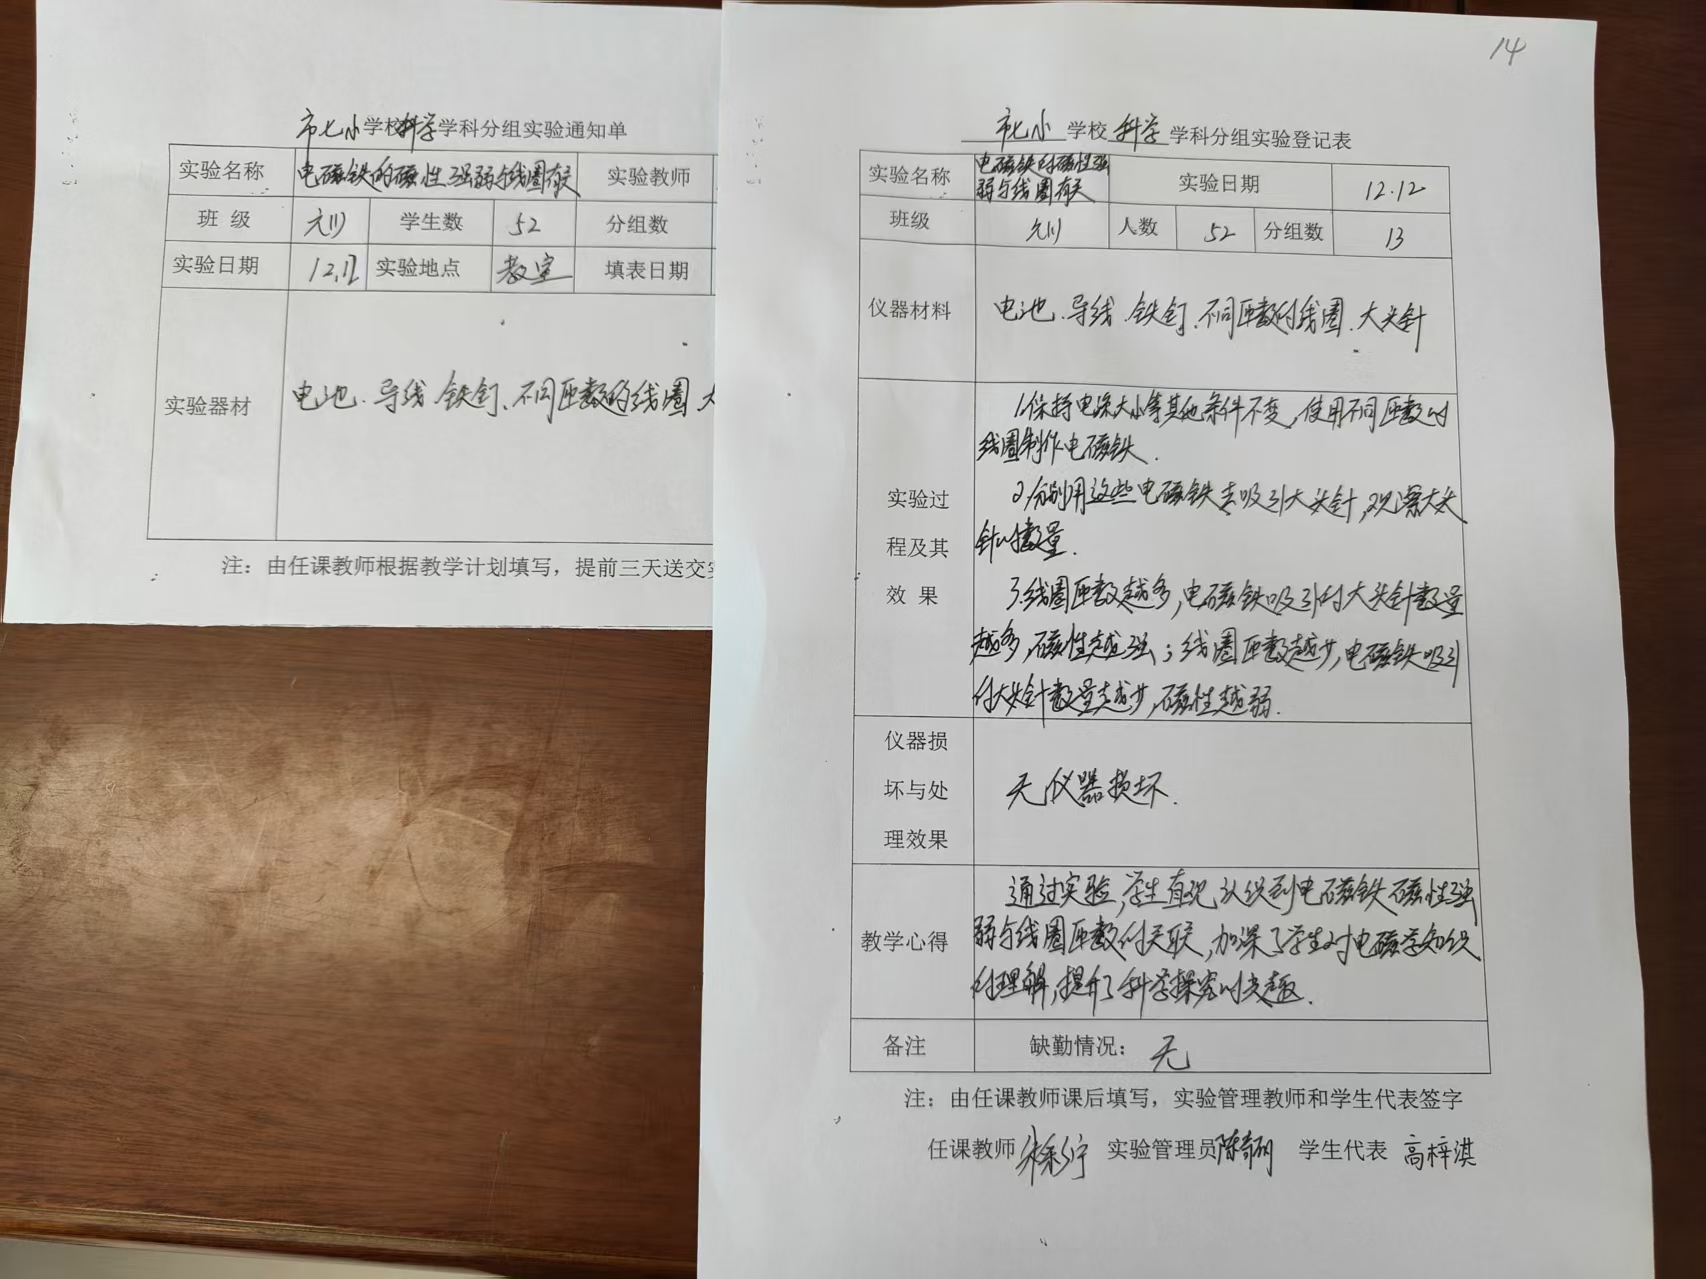 市七小学校科学学科分组实验通知单
实验名称 电磁铁的磁性强弱与线圈有关 实验教师
班 级 学生数 52 分组数
实验日期 12.12 实验地点 教室 填表日期
实验器材 电池、导线、铁钉、不同匝数的线圈
注：由任课教师根据教学计划填写，提前三天送交
14
市七小 学校 科学 学科分组实验登记表
实验名称 电磁铁的磁性强
弱与线圈有关 实验日期 12.12
班级 人数 52 分组数 13
仪器材料 电池、导线、铁钉、不同匝数的线圈、大头针
实验过
程及其
效 果
1.保持电源大小等其他条件不变，使用不同匝数的
线圈制作电磁铁.
2.分别用这些电磁铁去吸引大头针，观察大头
针的数量.
3.线圈匝数越多，电磁铁吸引的大头针数量
越多，磁性越强；线圈匝数越少，电磁铁吸引
的大头针数量越少，磁性越弱.
仪器损
坏与处
理效果
无仪器损坏.
教学心得
通过实验，学生直观认识到电磁铁磁性强
弱与线圈匝数的关联，加深了学生对电磁学知识
的理解，提升了科学探究的兴趣.
备注 缺勤情况： 无
注：由任课教师课后填写，实验管理教师和学生代表签字
任课教师 实验管理员 学生代表 高梓淇